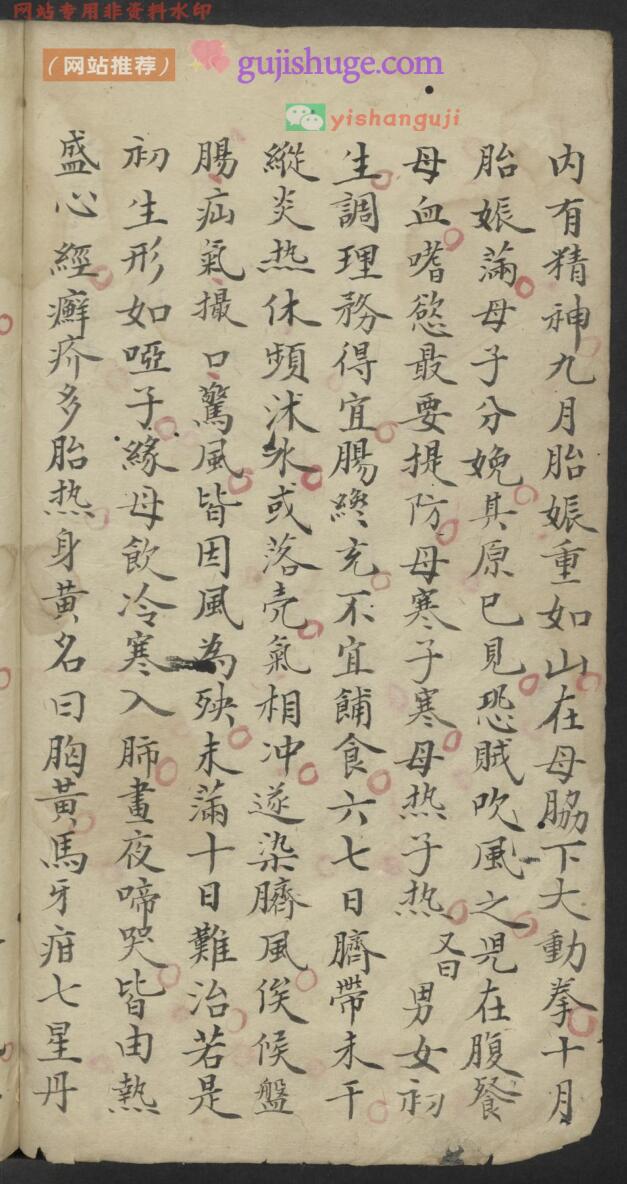 网站专用非资料水印
（网站推荐）
gujishuge.com
yishanguji
内有精神九月胎娠重如山在母脇下大動拳十月
胎娠滿母子分娩其原已見恐賊吹風之児在腹餐
母血嗜慾最要提防母寒子寒母热子热又曰男女初
生調理務得宜腸終充不宜餔食六七日臍帶未干
縱炎热休頻沐水或落壳氣相冲遂染臍風俟候盤
腸疝氣撮口驚風皆因風為殃未滿十日難治若是
初生形如啞子緣母飲冷寒入肺晝夜啼哭皆由熱
盛心經癬疥多胎热身黃名曰胸黃馬牙疳七星丹